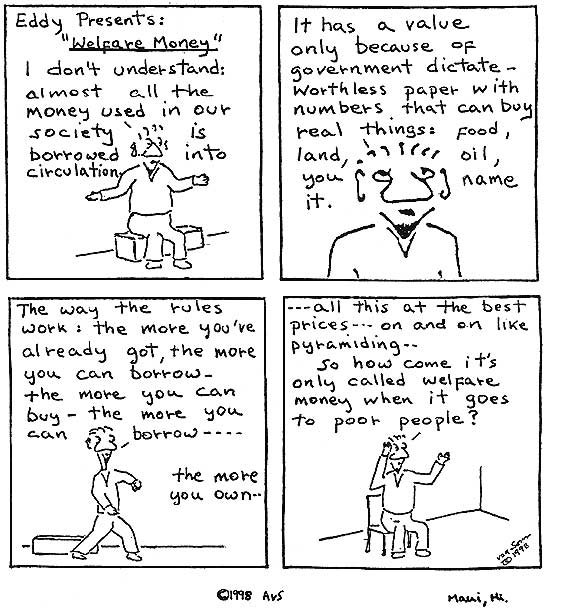 Eddy Presents:
"Welfare Money"
I don't understand:
almost all the
money used in our
society is
borrowed into
circulation.
It has a value
only because of
government dictate -
worthless paper with
numbers that can buy
real things: food,
land, oil,
you name
it.
The way the rules
work: the more you've
already got, the more
you can borrow -
the more you can
buy - the more you
can borrow ----
the more
you own --
--- all this at the best
prices --- on and on like
pyramiding --
So how come it's
only called welfare
money when it goes
to poor people?
©1998
©1998 AVS
Maui, Hi.